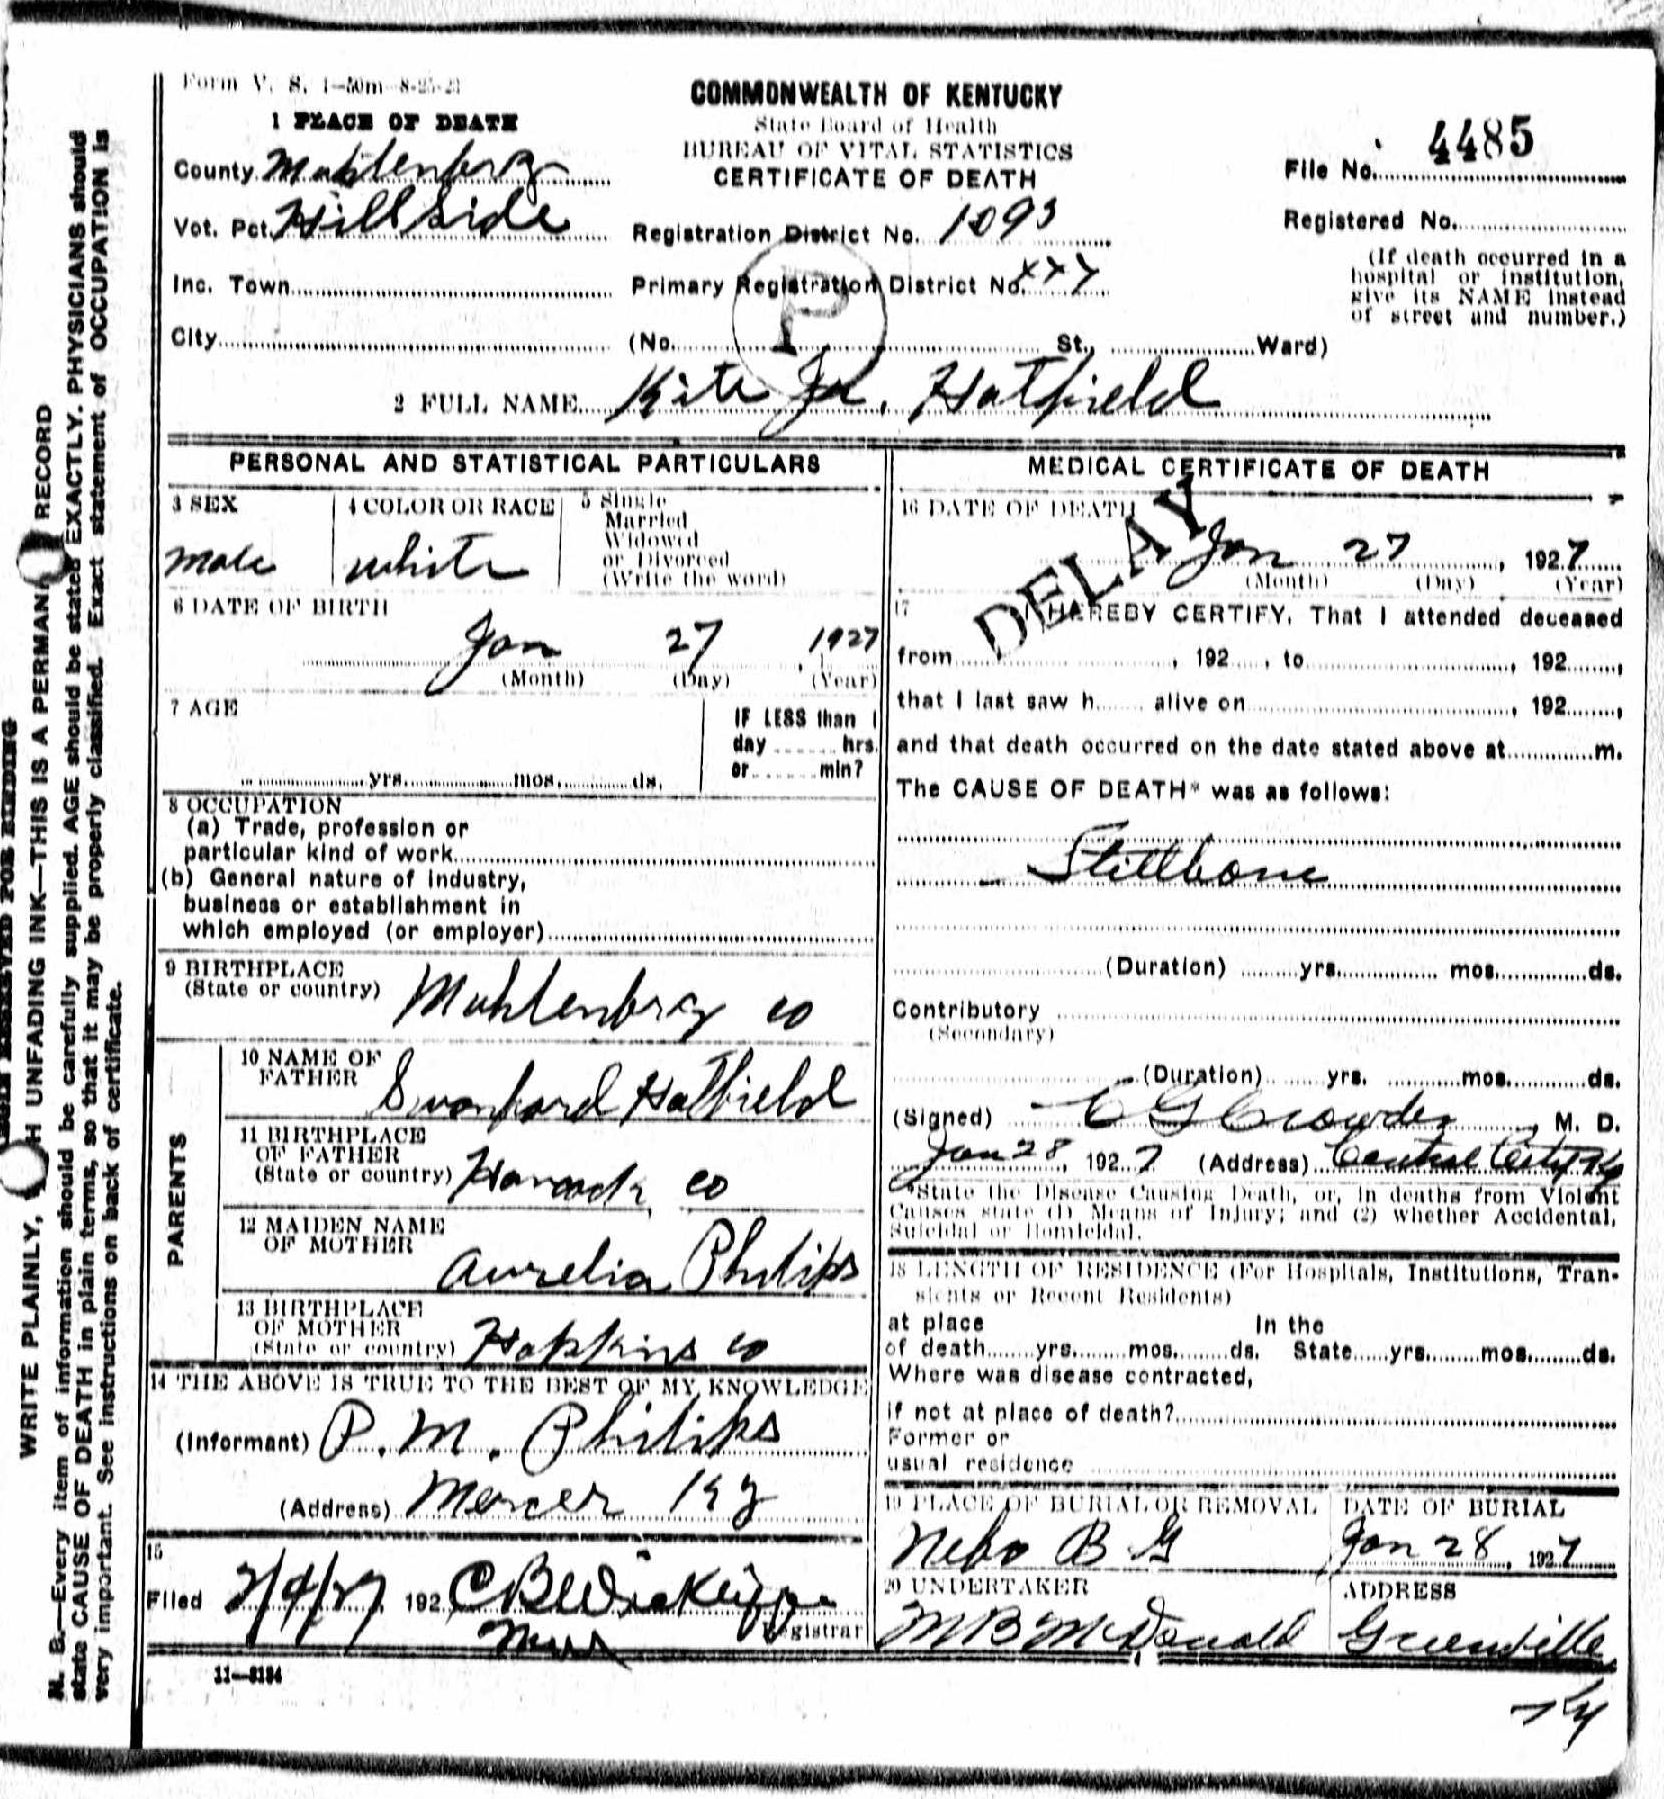 Form V. S. 1—50m—8-25-21
1 PLACE OF DEATH
COMMONWEALTH OF KENTUCKY
State Board of Health
BUREAU OF VITAL STATISTICS
CERTIFICATE OF DEATH
File No. 4485
County Muhlenberg
Vot. Pct. Hillside
Registration District No. 1093
Registered No.
Inc. Town
Primary Registration District No. xxx
(If death occurred in a
hospital or institution,
give its NAME instead
of street and number.)
P
City (No. St., Ward)
2 FULL NAME Kite Jr. Hatfield
PERSONAL AND STATISTICAL PARTICULARS
3 SEX
male
4 COLOR OR RACE
white
5 Single
Married
Widowed
or Divorced
(Write the word)
6 DATE OF BIRTH
Jan 27, 1927
(Month) (Day) (Year)
7 AGE
yrs. mos. ds.
IF LESS than 1
day hrs.
or min?
8 OCCUPATION
(a) Trade, profession or
particular kind of work
(b) General nature of industry,
business or establishment in
which employed (or employer)
9 BIRTHPLACE
(State or country) Muhlenbrg co
PARENTS
10 NAME OF
FATHER Swonford Hatfield
11 BIRTHPLACE
OF FATHER
(State or country) Hancock co
12 MAIDEN NAME
OF MOTHER Aurelia Philips
13 BIRTHPLACE
OF MOTHER
(State or country) Hopkins co
14 THE ABOVE IS TRUE TO THE BEST OF MY KNOWLEDGE
(Informant) P. M. Philips
(Address) Mercer Ky
15
Filed 2/4/27 192 C B Wickliffe
Registrar
11—3184
MEDICAL CERTIFICATE OF DEATH
16 DATE OF DEATH
DELAY
Jan 27, 1927
(Month) (Day) (Year)
17 I HEREBY CERTIFY, That I attended deceased
from , 192 , to , 192 ,
that I last saw h alive on , 192 ,
and that death occurred on the date stated above at m.
The CAUSE OF DEATH* was as follows:
Stillborne
(Duration) yrs. mos. ds.
Contributory
(Secondary)
(Duration) yrs. mos. ds.
(Signed) C G Crowder, M. D.
Jan 28, 1927 (Address) Central City Ky
*State the Disease Causing Death, or, in deaths from Violent
Causes state (1) Means of Injury; and (2) whether Accidental,
Suicidal or Homicidal.
18 LENGTH OF RESIDENCE (For Hospitals, Institutions, Tran-
sients or Recent Residents)
at place In the
of death yrs. mos. ds. State yrs. mos. ds.
Where was disease contracted,
if not at place of death?
Former or
usual residence
19 PLACE OF BURIAL OR REMOVAL
Nebo B G
DATE OF BURIAL
Jan 28, 1927
20 UNDERTAKER
M B McDonald
ADDRESS
Greenville
Ky
WRITE PLAINLY, H UNFADING INK—THIS IS A PERMAN RECORD
N. B.—Every item of information should be carefully supplied. AGE should be stated EXACTLY. PHYSICIANS should
state CAUSE OF DEATH in plain terms, so that it may be properly classified. Exact statement of OCCUPATION is
very important. See instructions on back of certificate.